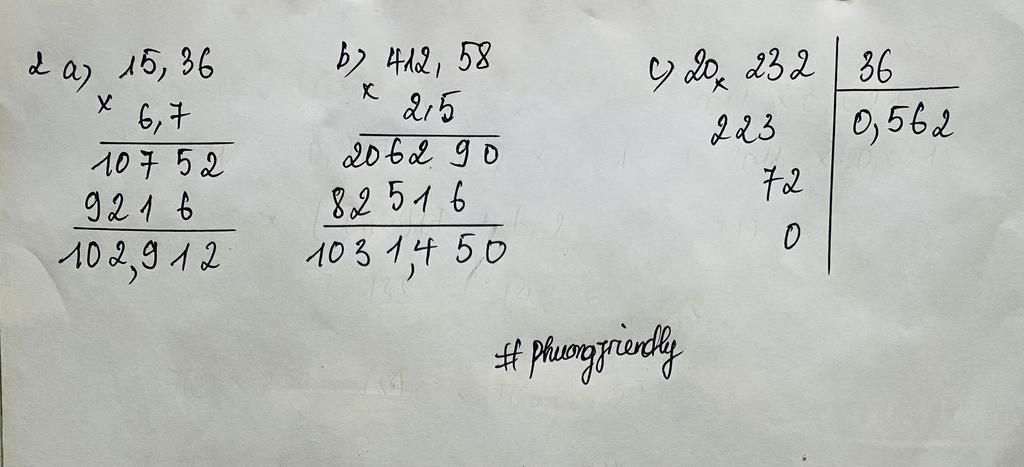 2 a) 15,36
x 6,7
10752
9216
102,912
b) 412,58
x 2,5
206290
82516
1031,450
c) 20,232 36
223 0,562
72
0
#phuongfriendly